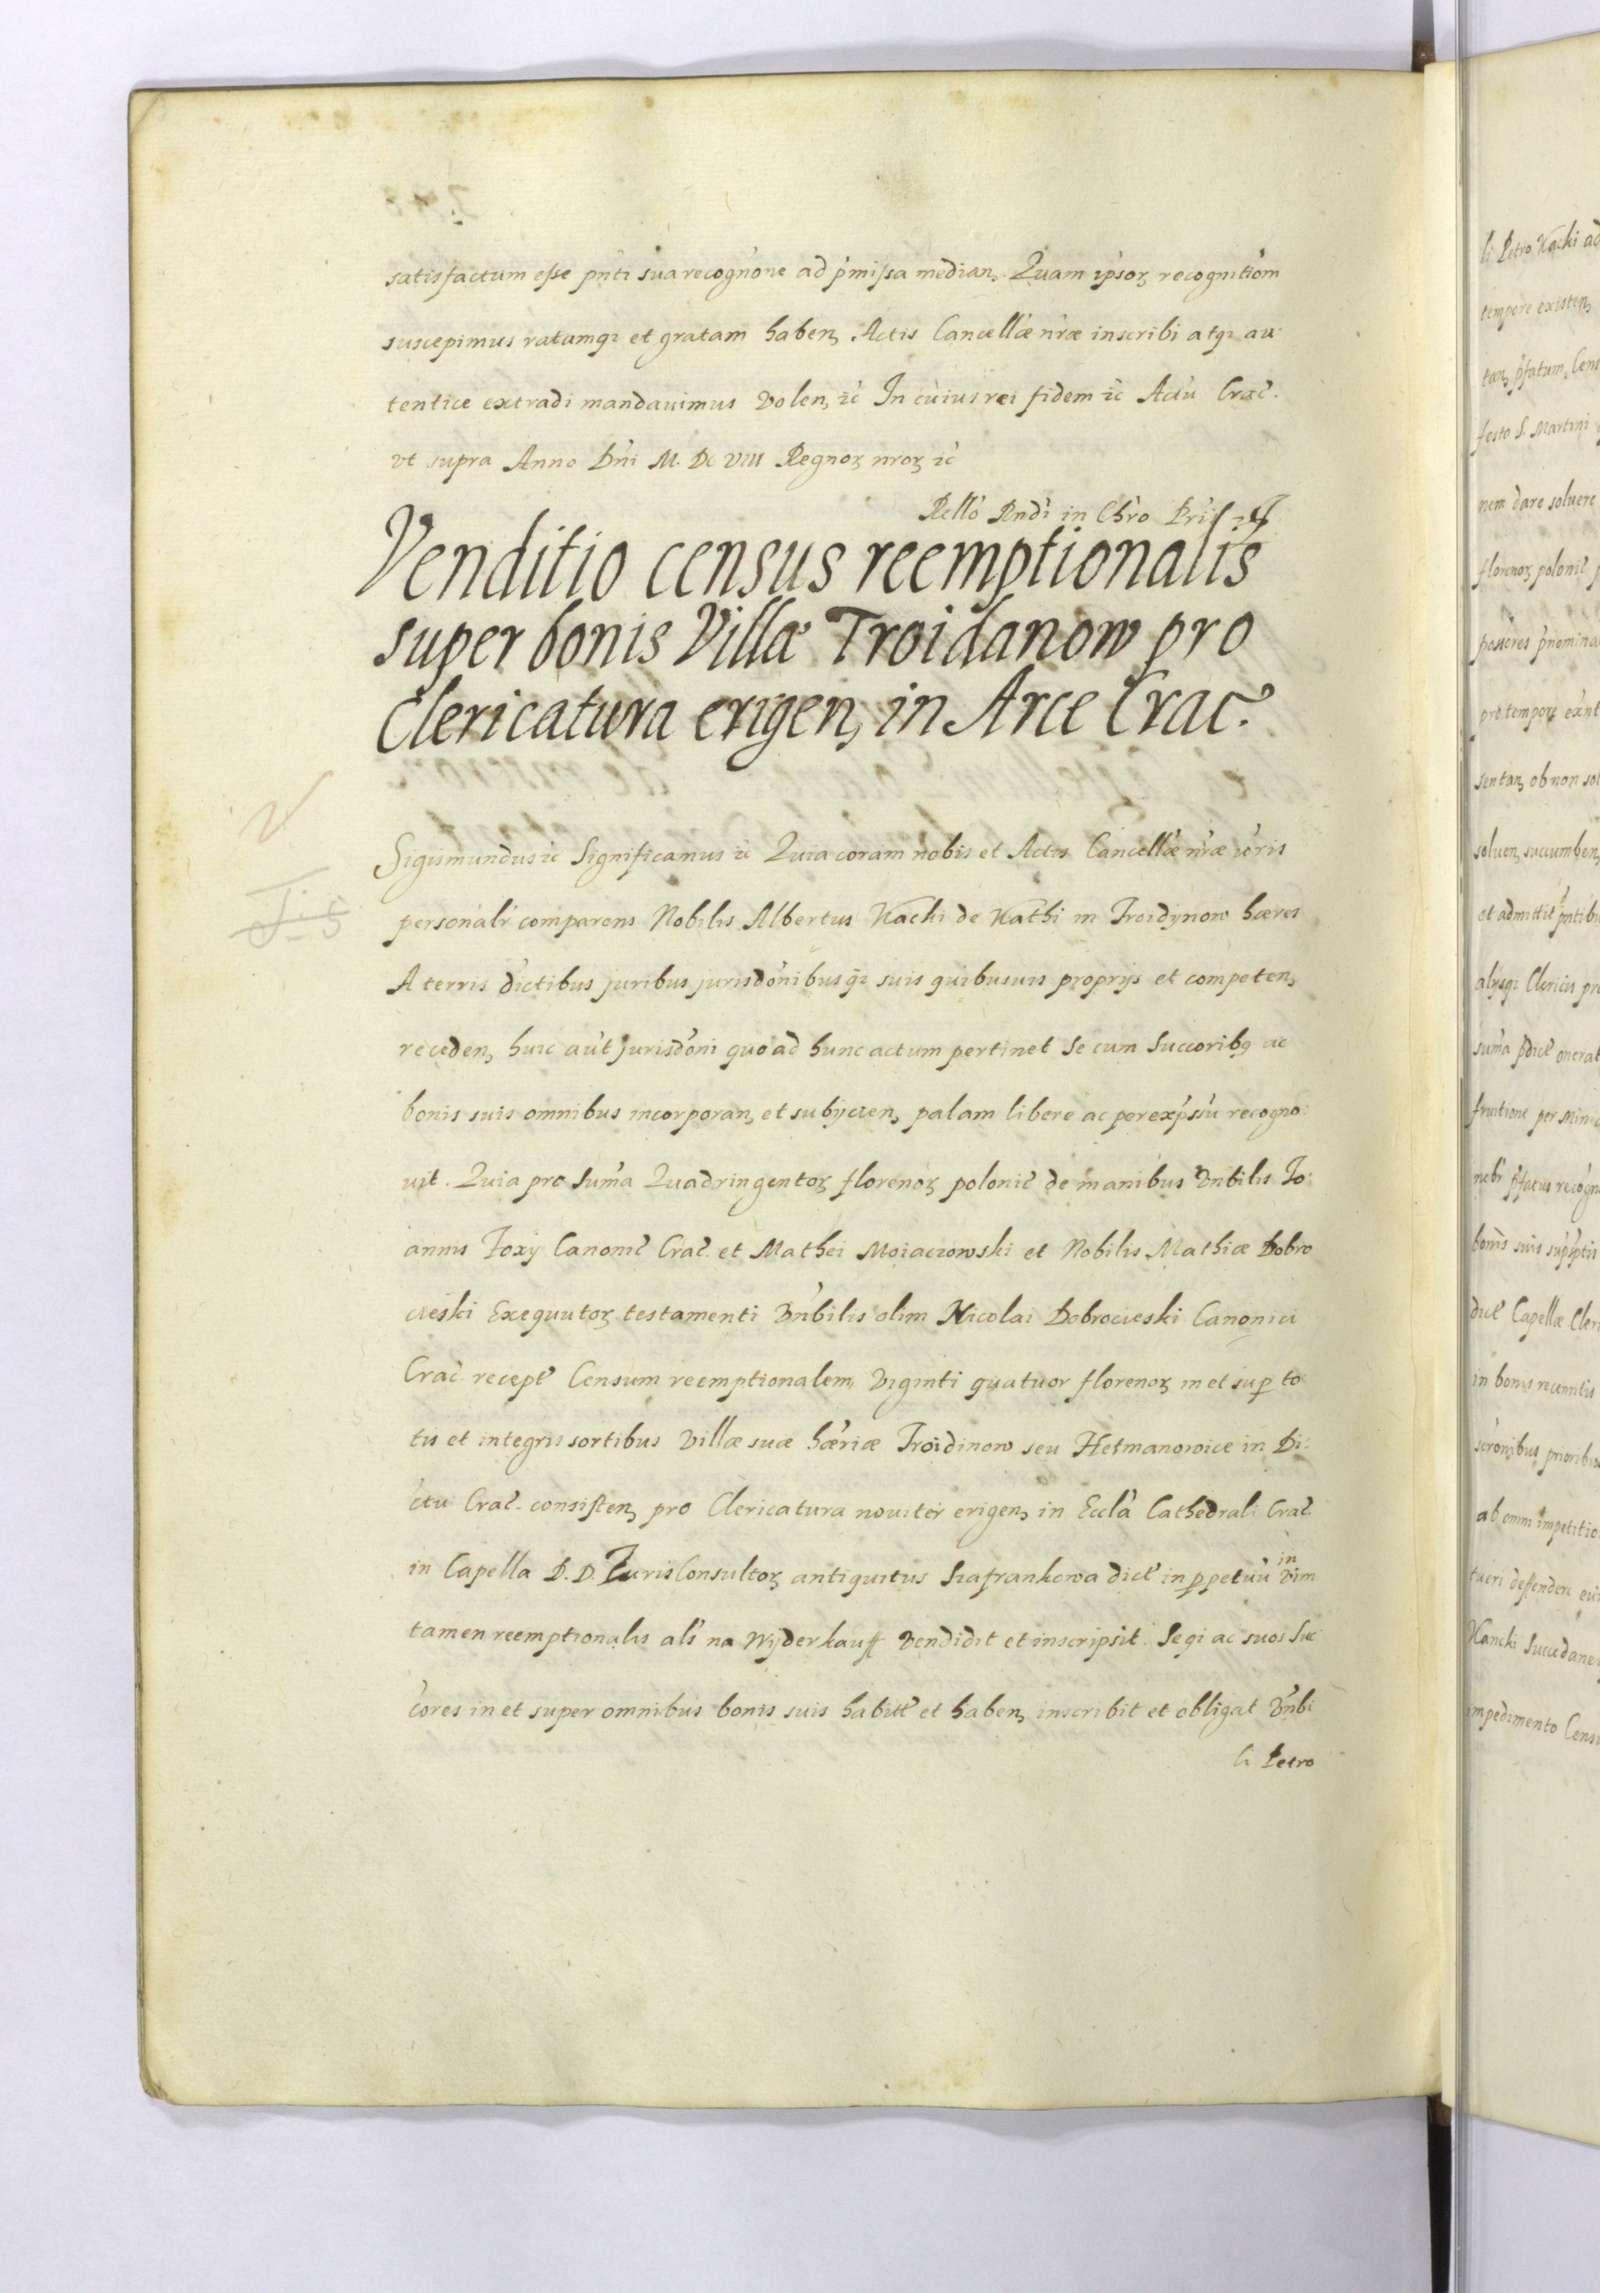 satisfactum esse pn̄ti sua recogn̄one ad p̄missa median, Quam ipsoꝝ recognitiōm
suscepimus ratamqꝫ et gratam haben, Actis Cancellæ n̄ræ inscribi atqꝫ au
tentice extradi mandauimus Volen, ꝛc̄ In cuius rei fidem ꝛc̄ Actū Crac̄.
vt supra Anno Dn̄i M. DC VIII Regnoꝝ nroꝝ ꝛc̄
Rellō Rndi in Chro Pris ꝛc
Venditio census reemptionalis
super bonis Villæ Troidanow pro
Clericatura erigen, in Arce Crac.
Sigismundus ꝛc Significamus ꝛc Quia coram nobis et Actis Cancellæ nr̄æ
personalr̄ comparens Nobilis Albertus Kacki de Kathi in Troidynow hæres
A terris dictibus juribus jurisdōnibusqꝫ suis quibusuis proprijs et competen,
receden, huic aūt jurisdōni quo ad hunc actum pertinet Se cum Succoribꝫ ac
bonis suis omnibus incorporan, et subijcien, palam libere ac per exp̄ssū recogno
uit. Quia pro Suma Quadringentoꝝ florenoꝝ polonic̄ de manibus Vnbilis Jo
annis Foxij Canonic̄ Crac̄. et Mathei Moiaczowski et Nobilis Mathiæ Dobro
cieski Exequutoꝝ testamenti Vn̄bilis olim Nicolai Dobrocieski Canonici
Crac̄ recept̄ Censum reemptionalem Viginti quatuor florenoꝝ in et sup to
tis et integris sortibus Villæ suæ hær̄iæ Troidinow seu Hetmanowice in Di
ctu Crac̄. consisten, pro Clericatura nouiter erigen, in Eccla Cathedrali Crac̄
in Capella D. D. JurisConsultoꝝ antiquitus Szafrankowa dict̄ in ppetuū in Vim
tamen reemptionalis als na Wyderkauff Vendidit et inscripsit. Seqꝫ ac suos Suc
cores in et super omnibus bonis suis habitt̄ et haben, inscribit et obligat Vn̄bi
li Petro
li Petro Kacki ad
tempore existen,
tan, p̄fatum, Cens
festo S. Martini
nem dare soluere
florenoꝝ polonic̄ p
sentan, ob non sol
soluen, succumben,
et admittit pn̄tibu
alijsqꝫ Clericis pro
suma pdict̄ onerat
dict̄ Capellæ Cleri
in bonis
ab omni impetitio
tueri deffendere
Kancki Succedane
impedimento Cens